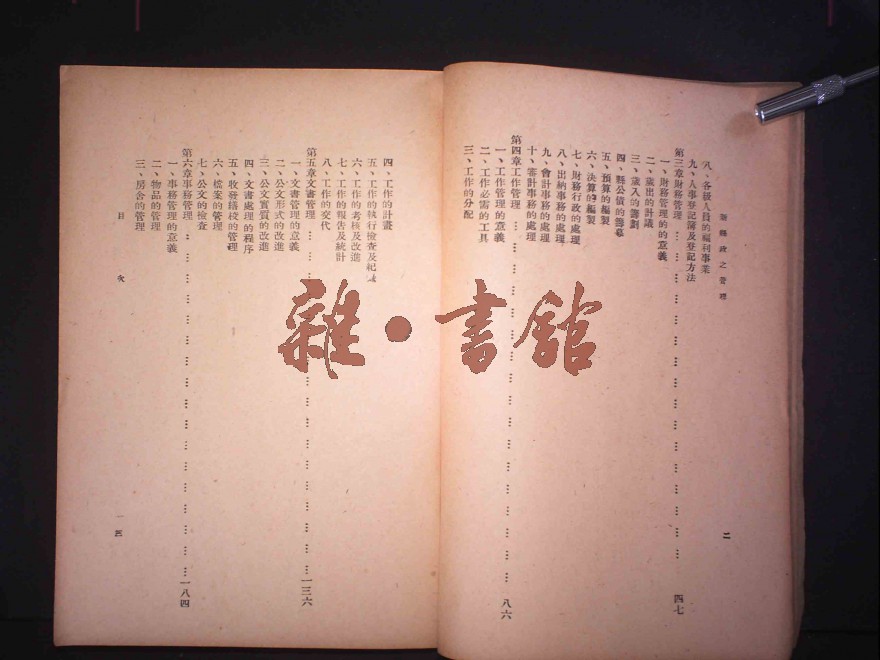 新縣政之管理
八、各級人員的福利事業
九、人事登記簿及登記方法
第三章財務管理………………………………………………四七
一、財務管理的的意義
二、歲出的計議
三、歲入的籌劃
四、縣公債的籌募
五、預算的編製
六、決算的編製
七、財務行政的處理
八、出納事務的處理
九、會計事務的處理
十、審計事務的處理
第四章工作管理………………………………………………八六
一、工作管理的意義
二、工作必需的工具
三、工作的分配
二
四、工作的計畫
五、工作的執行檢查及紀錄
六、工作的考核及改進
七、工作的報告及統計
八、工作的交代
第五章文書管理………………………………………………一三六
一、文書管理的意義
二、公文形式的改進
三、公文實質的改進
四、文書處理的程序
五、收發繕校的管理
六、檔案的管理
七、公文的檢查
第六章事務管理………………………………………………一八四
一、事務管理的意義
二、物品的管理
三、房舍的管理
目次
雜·書館